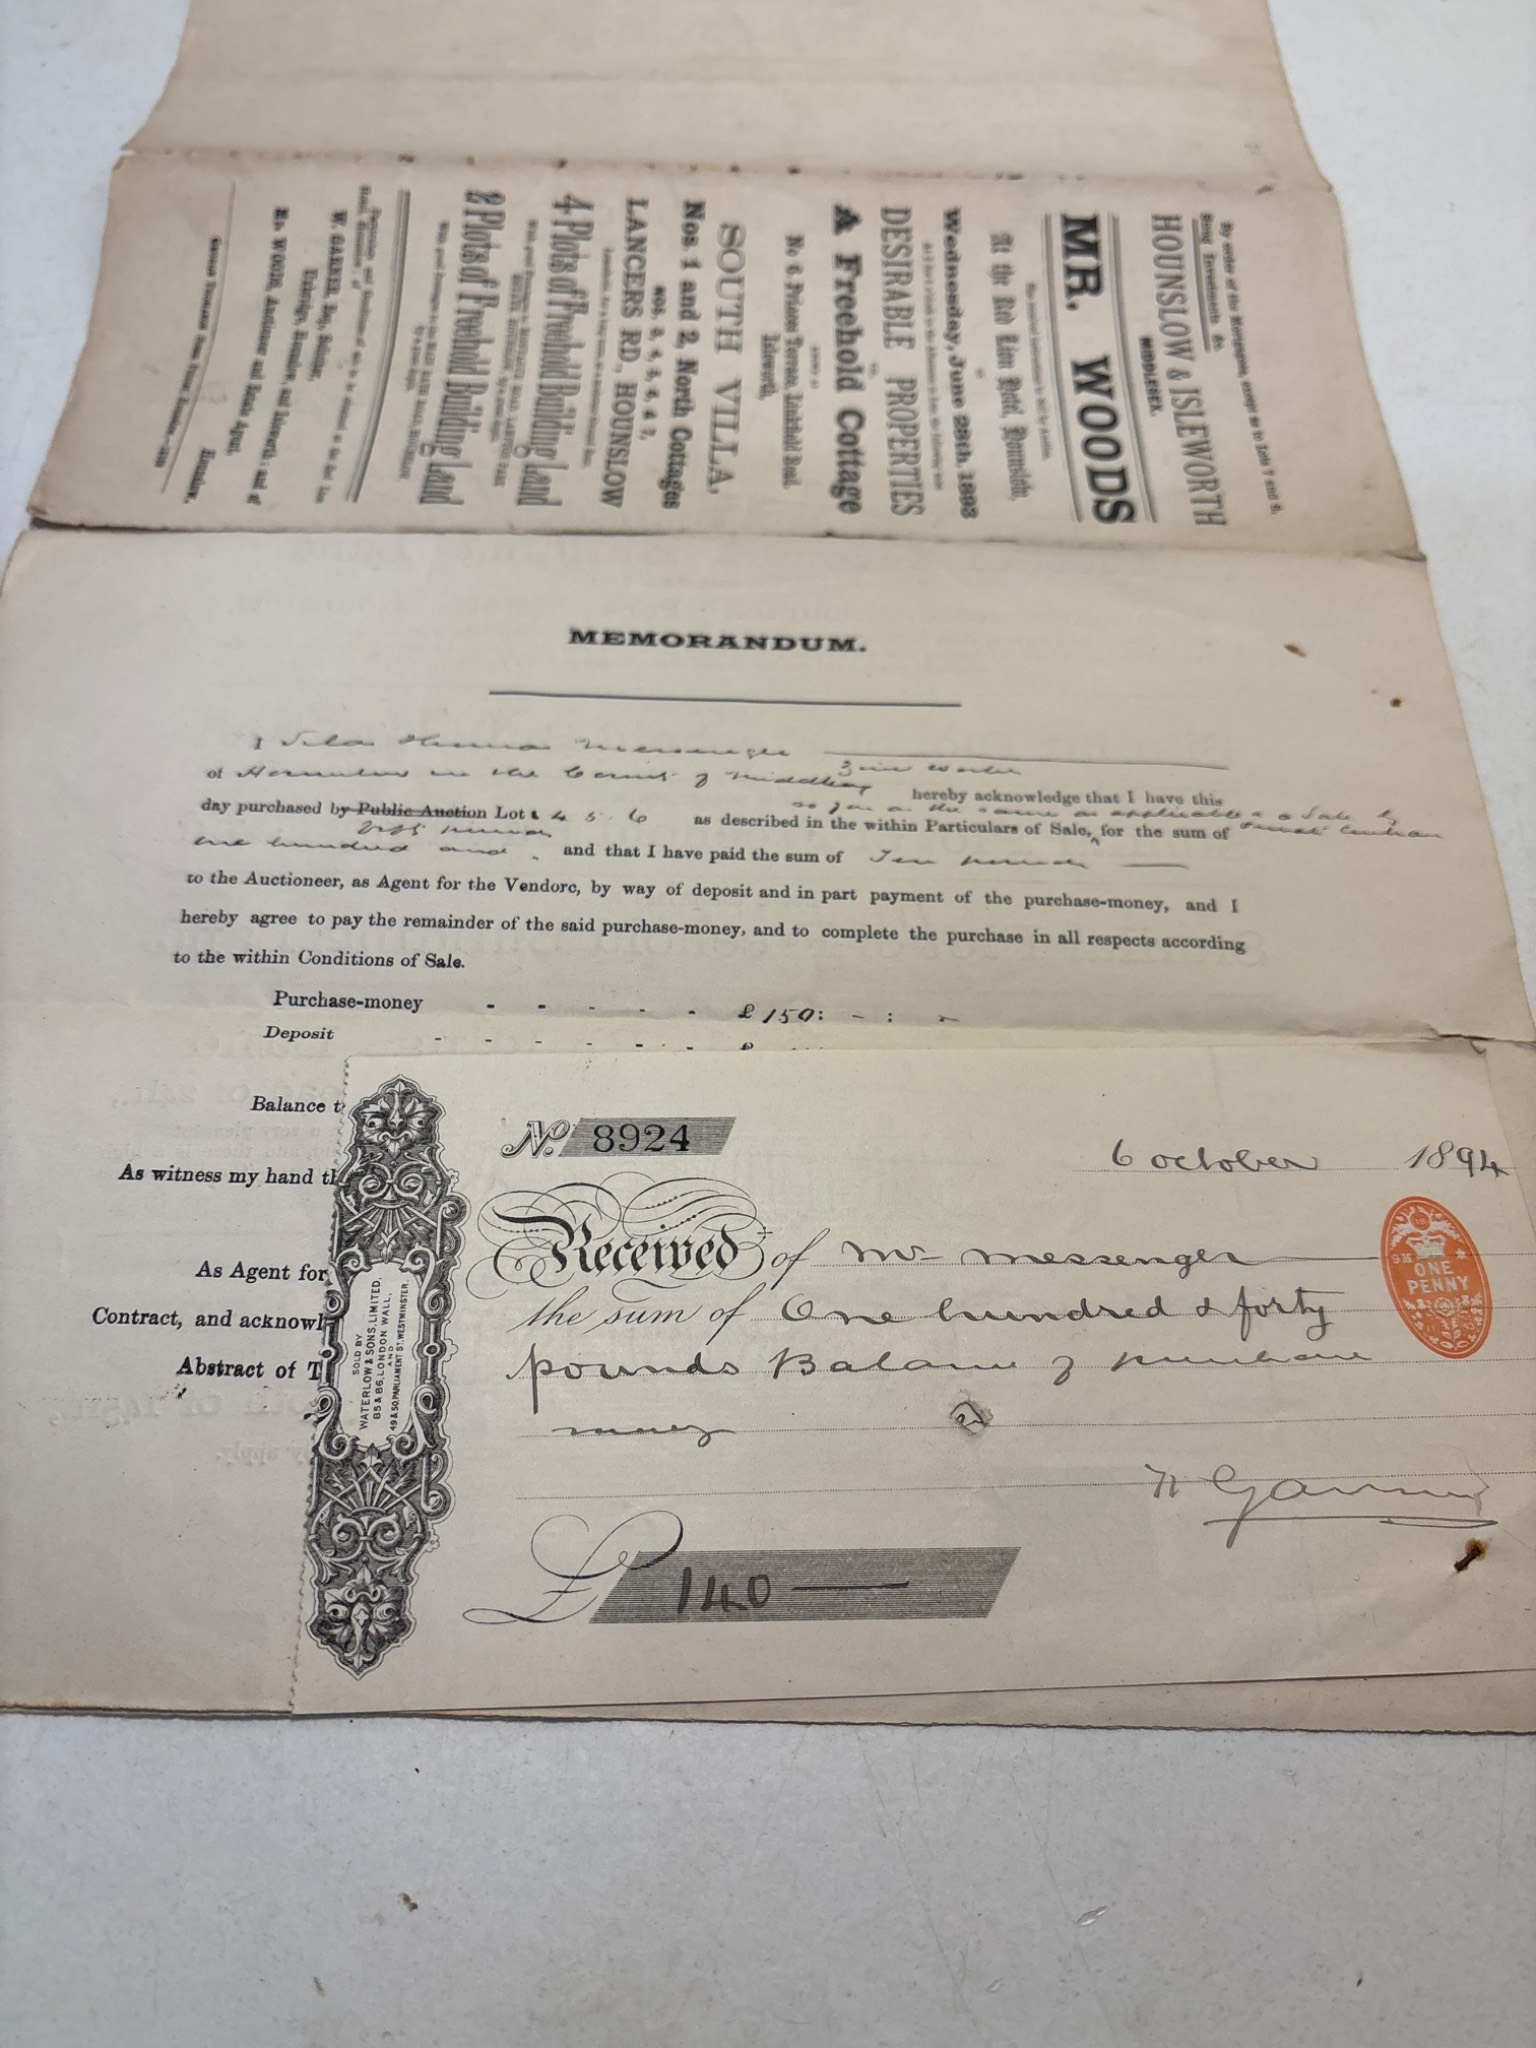 By order of the Mortgagees, except as to Lots 7 and 8.
HOUNSLOW & ISLEWORTH
MIDDLESEX.
MR. WOODS
At the Red Lion Hotel, Hounslow,
Wednesday, June 28th, 1893
DESIRABLE PROPERTIES
A Freehold Cottage
No 6, Princes Terrace, Linkfield Road,
Isleworth,
SOUTH VILLA,
Nos 1 and 2, North Cottages
NOS. 3, 4, 5, 6, & 7,
LANCERS RD., HOUNSLOW
4 Plots of Freehold Building Land
2 Plots of Freehold Building Land
W. GARNER, Esq., Solicitor,
Uxbridge, Hounslow, and Isleworth; and of
Mr. WOODS, Auctioneer and Estate Agent,
Hounslow.
MEMORANDUM.
I Silas Thomas Messenger
Zinc Worker
of Hounslow in the County of Middlesex hereby acknowledge that I have this
so far as the same as applicable to a Sale by
day purchased by Public Auction Lots 4 5. 6 as described in the within Particulars of Sale, for the sum of Private Contract
one hundred and fifty pounds and that I have paid the sum of Ten pounds
to the Auctioneer, as Agent for the Vendors, by way of deposit and in part payment of the purchase-money, and I
hereby agree to pay the remainder of the said purchase-money, and to complete the purchase in all respects according
to the within Conditions of Sale.
Purchase-money - - - - - £ 150: - : -
Deposit - - - - - - £
Balance
As witness my hand
As Agent for
Contract, and
Abstract of
SOLD BY
WATERLOW & SONS, LIMITED,
85 & 86, LONDON WALL,
AND
49 & 50, PARLIAMENT ST, WESTMINSTER.
No. 8924
6 october 1894
Received of Mr Messenger
the sum of One hundred & forty
pounds Balance of purchase
money
W Garner
£ 140 —
ONE
PENNY